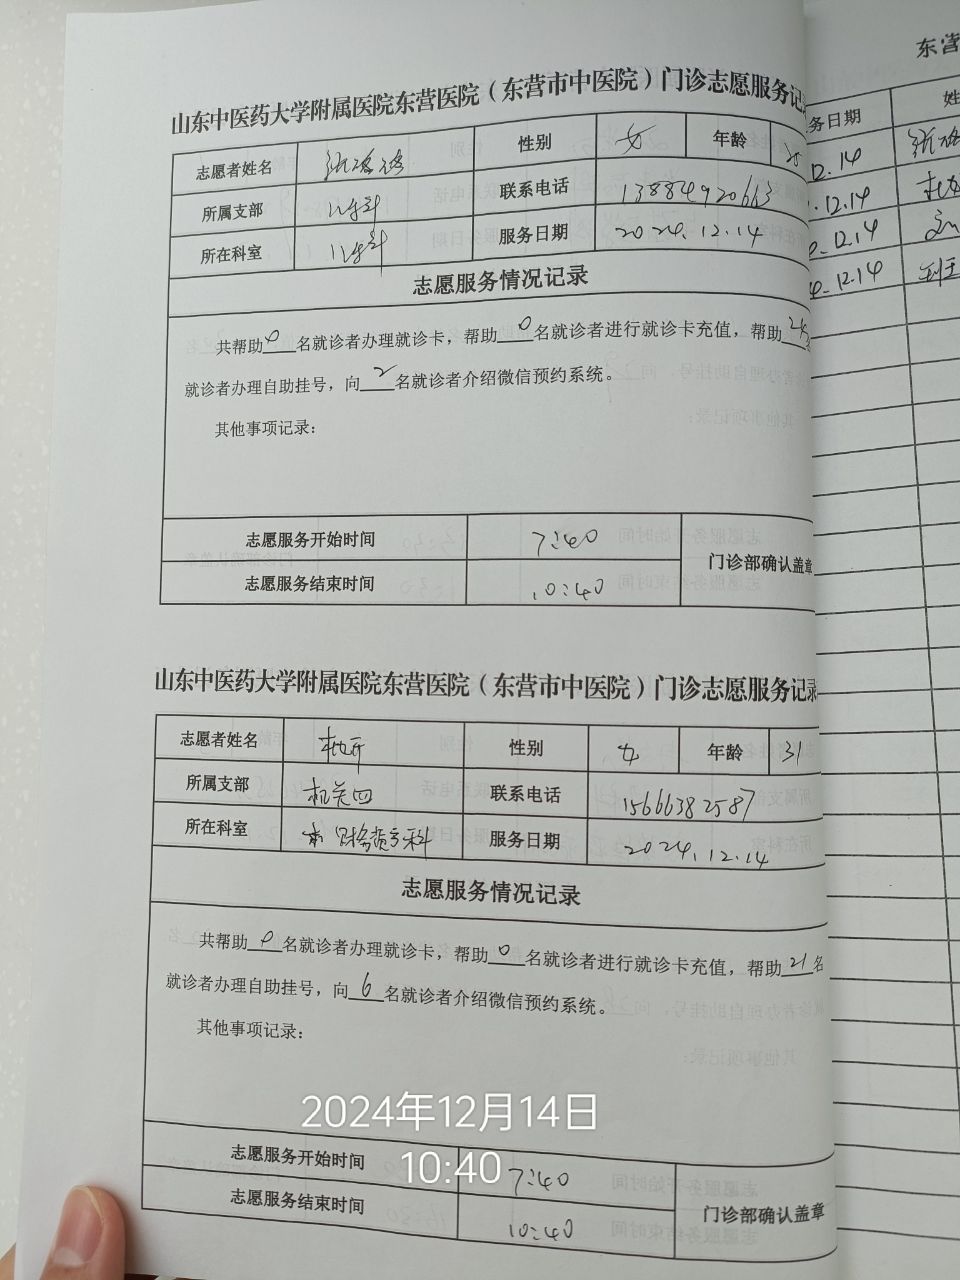 山东中医药大学附属医院东营医院（东营市中医院）门诊志愿服务记
志愿者姓名 性别 女 年龄
所属支部 儿科 联系电话 13884920663
所在科室 儿科 服务日期 2024.12.14
志愿服务情况记录
共帮助0名就诊者办理就诊卡，帮助0名就诊者进行就诊卡充值，帮助
就诊者办理自助挂号，向2名就诊者介绍微信预约系统。
其他事项记录：
志愿服务开始时间 7:40
门诊部确认盖章
志愿服务结束时间 10:40
山东中医药大学附属医院东营医院（东营市中医院）门诊志愿服务记录
志愿者姓名 性别 女 年龄 31
所属支部 机关四 联系电话 15666382587
所在科室 服务日期 2024.12.14
志愿服务情况记录
共帮助0名就诊者办理就诊卡，帮助0名就诊者进行就诊卡充值，帮助21名
就诊者办理自助挂号，向6名就诊者介绍微信预约系统。
其他事项记录：
2024年12月14日
10:40
志愿服务开始时间 7:40
门诊部确认盖章
志愿服务结束时间 10:40
东营
务日期 姓
12.14
12.14
12.14
12.14